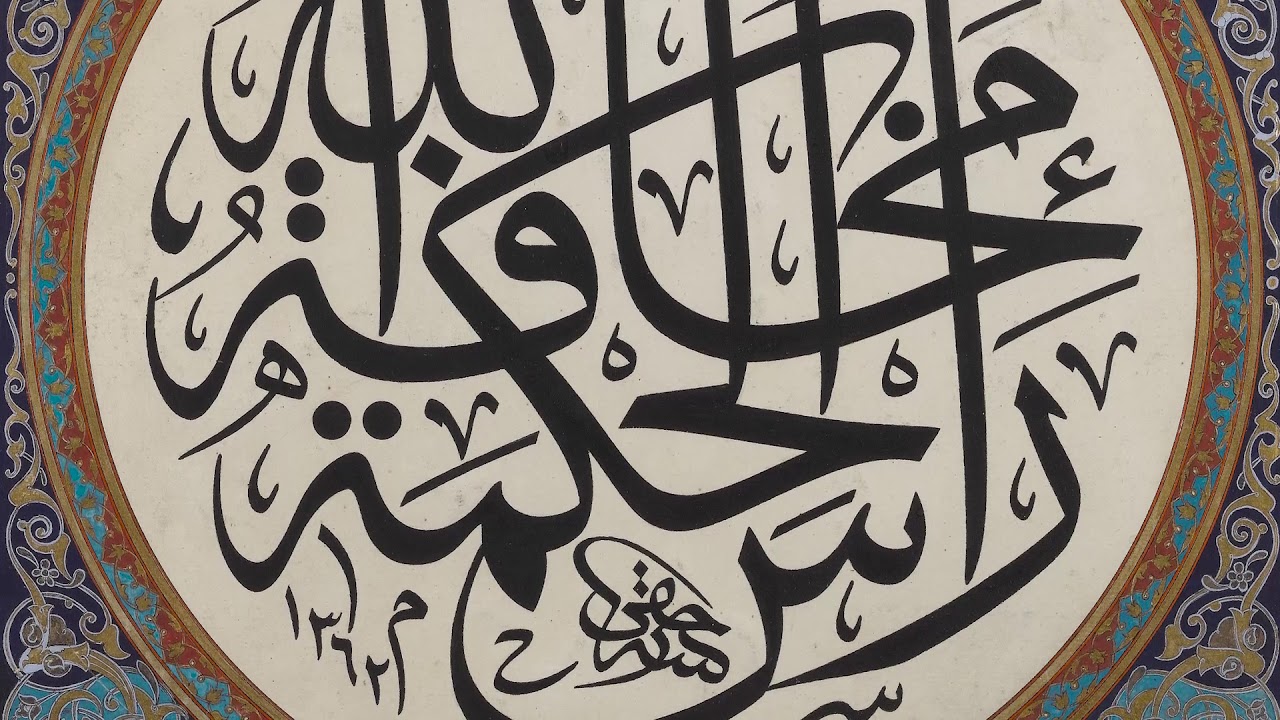 رَأْسُ الْحِكْمَةِ
مَخَافَةُ اللّٰهِ
حقي
م ١٣٦٢